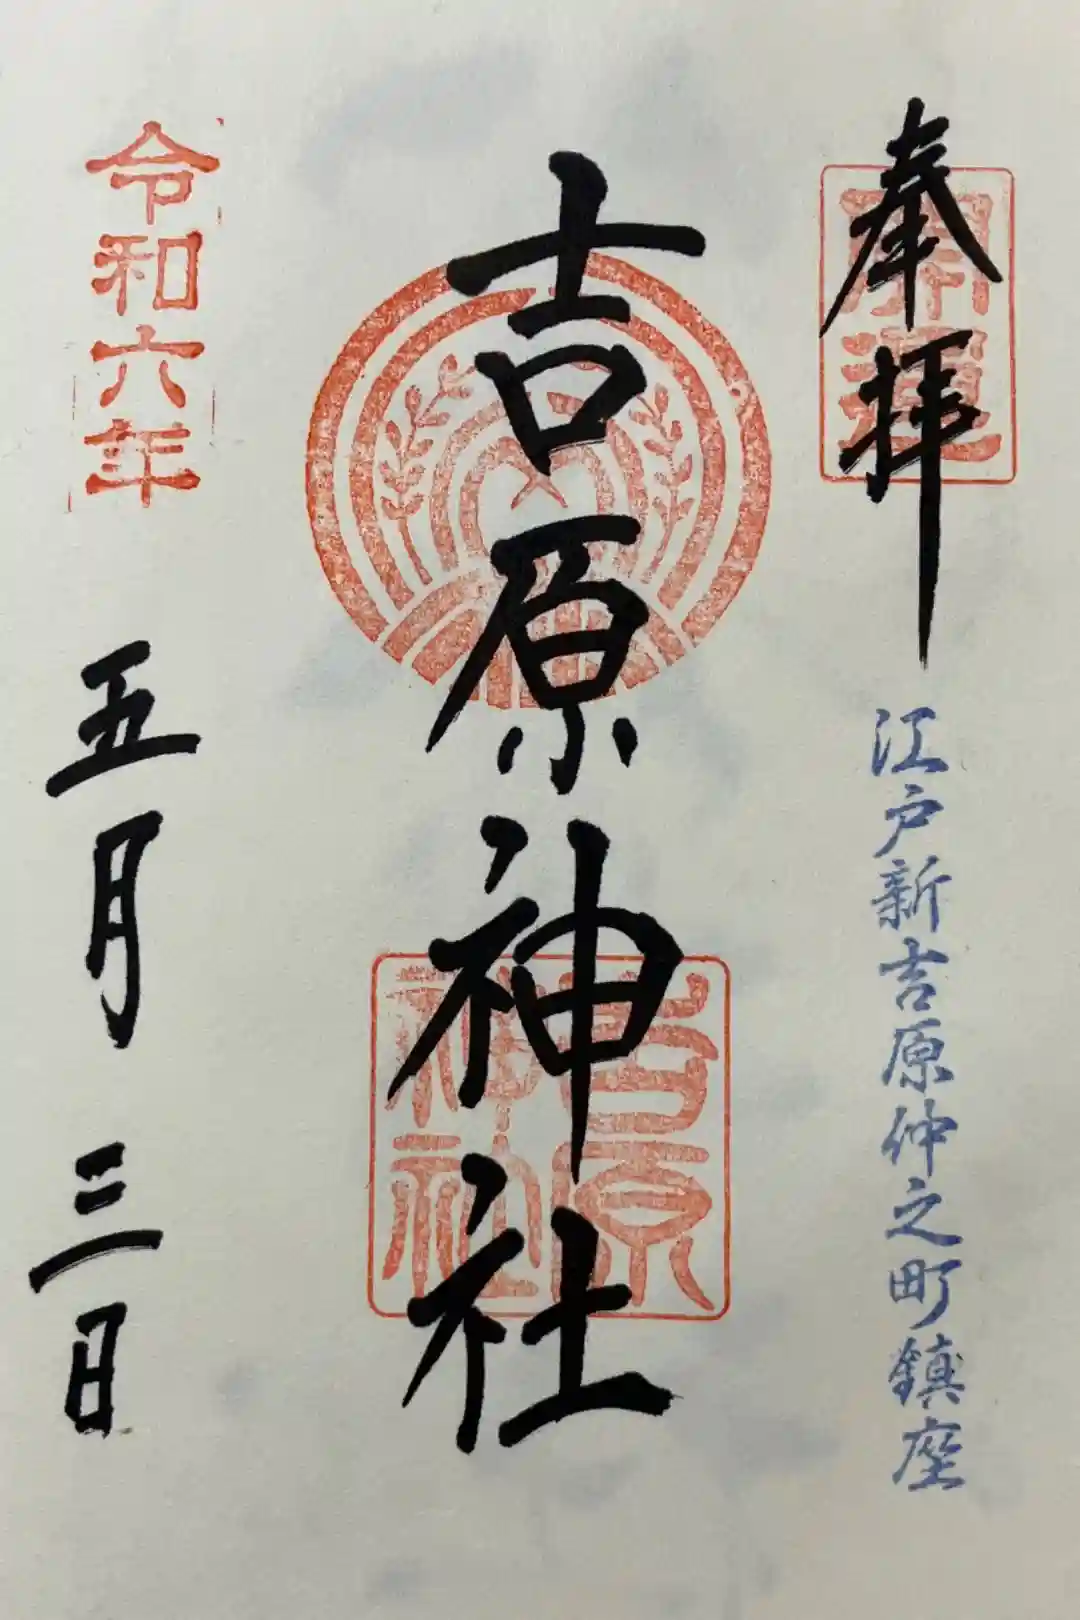 奉拝
開運
江戸新吉原仲之町鎮座
吉原神社
吉原
神社
令和六年
五月三日